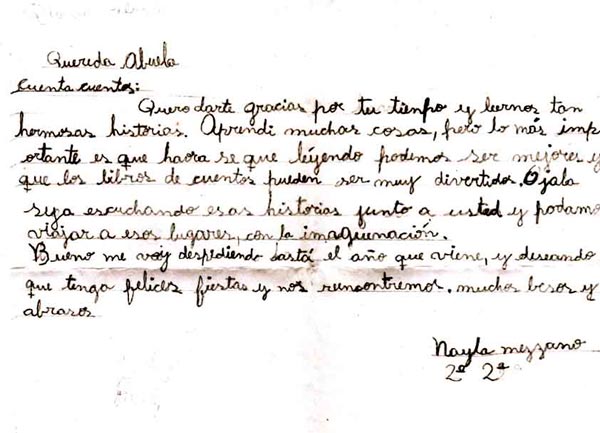 Querida Abuela
Cuenta cuentos:
Quero darte gracias por tu tienpo y leernos tan
hermosas historias. Aprendi muchas cosas, pero lo más imp
ortante es que haora se que léyendo podemos ser mejores y
que los libros de cuentos pueden ser muy divertidos. Ojala
siga escuchando esas historias junto a usted y podamo
viajar a esos lugares, con la imaguenación.
Bueno me voy despidiendo hasta el año que viene, y deseando
que tenga felices fiestas y nos rencontremos. muchos besos y
abrasos
Nayla mezzano
2º 2ª